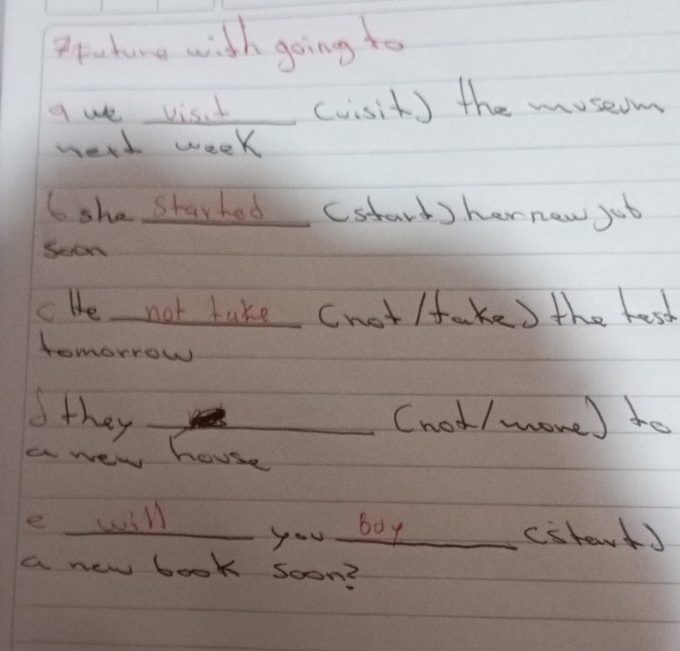 7 future with going to
a we visit (visit) the museum
next week
b she started (start) her new job
soon
c He not take (not/take) the test
tomorrow
d they (not/move) to
a new house
e will you Buy (start)
a new book soon?